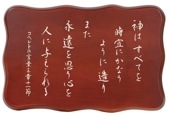 神はすべてを
時宜にかなう
ように造り
また
永遠を思う心を
人に与えられる
コヘレトの言葉三章十一節